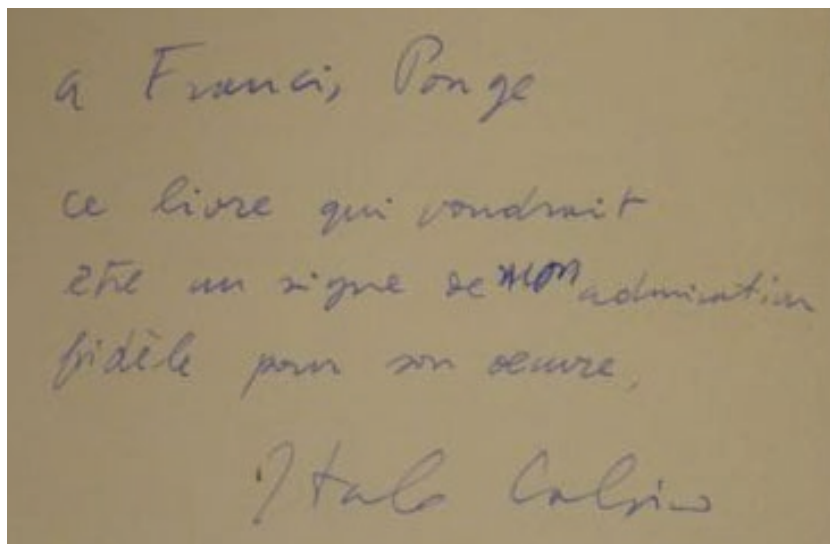 a Francis Ponge
ce livre qui voudrait
être un signe de mon admiration
fidèle pour son oeuvre,
Italo Calvino